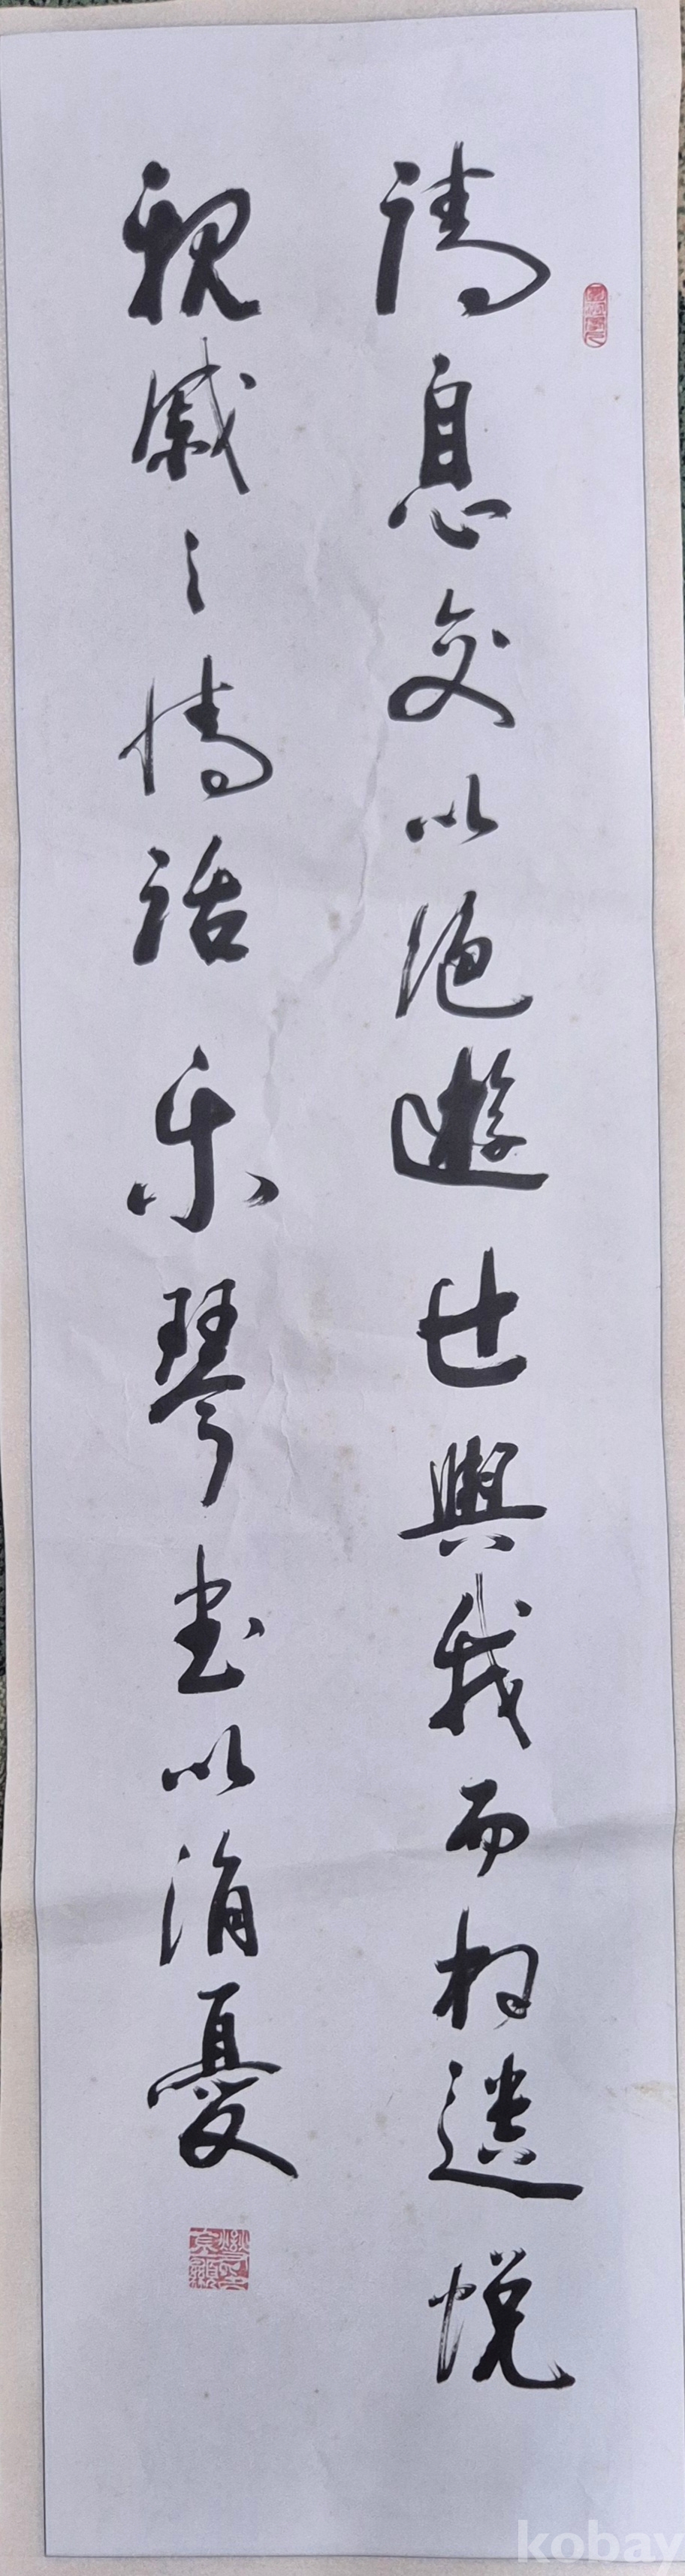 請息交以絕遊世與我而相遺悦
親戚之情話乐琴书以消憂
kobay